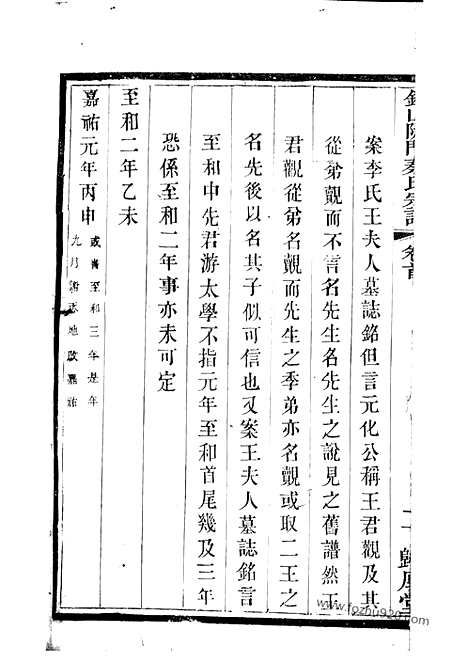 氏宗譜 卷首
案李氏王夫人墓誌銘但言元化公稱王君觀及其
從弟觀而不言名先生名先生之說見之舊譜然王
君觀從弟名覿而先生之季弟亦名覿或取二王之
名先後以名其子似可信也又案王夫人墓誌銘言
至和中先君游太學不指元年至和首尾幾及三年
恐係至和二年事亦未可定
至和二年乙未
嘉祐元年丙申
九月 改嘉祐
www.fozhu920.com